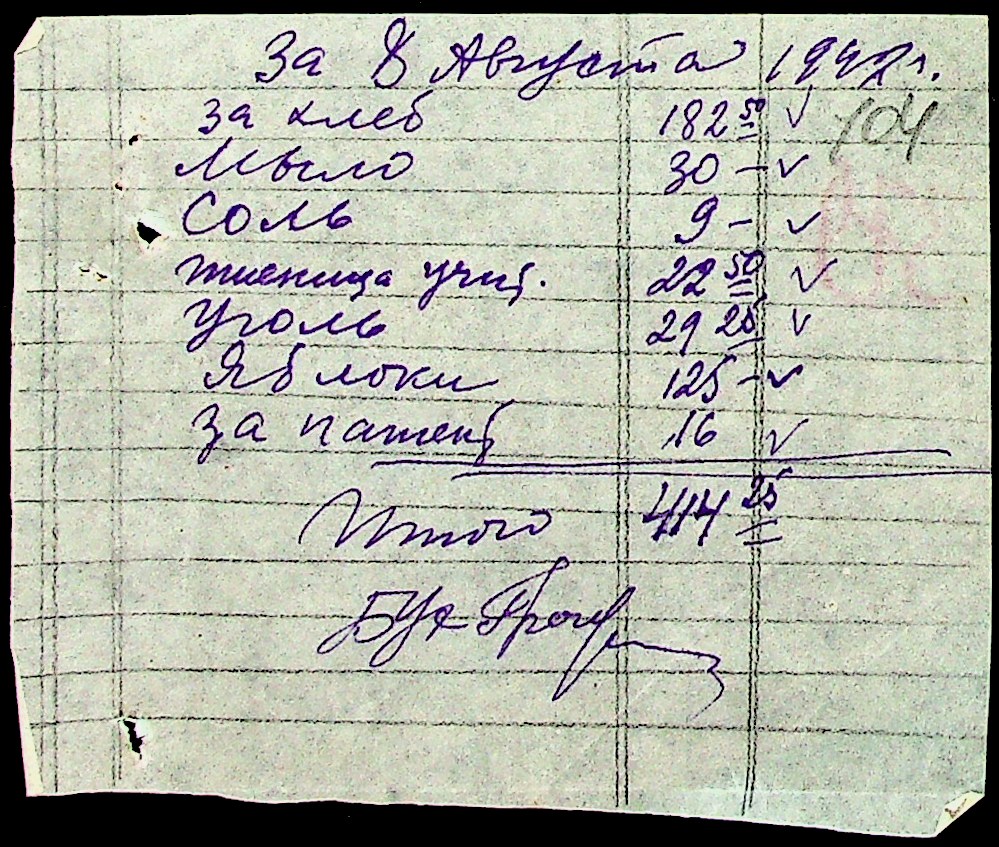 За 8 Августа 1942 г.
104
за хлеб 182 50 ✓
Мыло 30 – ✓
Соль 9 – ✓
пшеница учит. 22 50 ✓
Уголь 29 25 ✓
Яблоки 125 – ✓
за патент 16 ✓
Итого 414 25
Бух